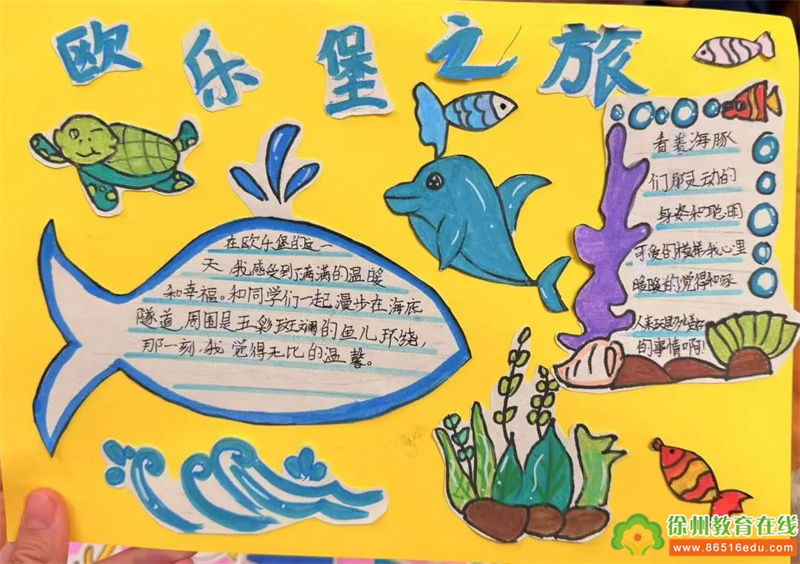 欧乐堡之旅
看着海豚
们那灵动的
身姿和聪明
可爱的模样我心里
暖暖的觉得和
的事情啊！
在欧乐堡的这一
天，我感受到了满满的温暖
和幸福。和同学们一起漫步在海底
隧道，周围是五彩斑斓的鱼儿环绕，
那一刻，我觉得无比的温馨。
徐州教育在线
www.86516edu.com